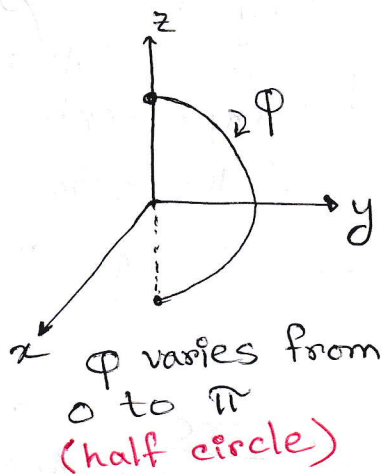 z
φ
y
x
φ varies from
0 to π
(half circle)